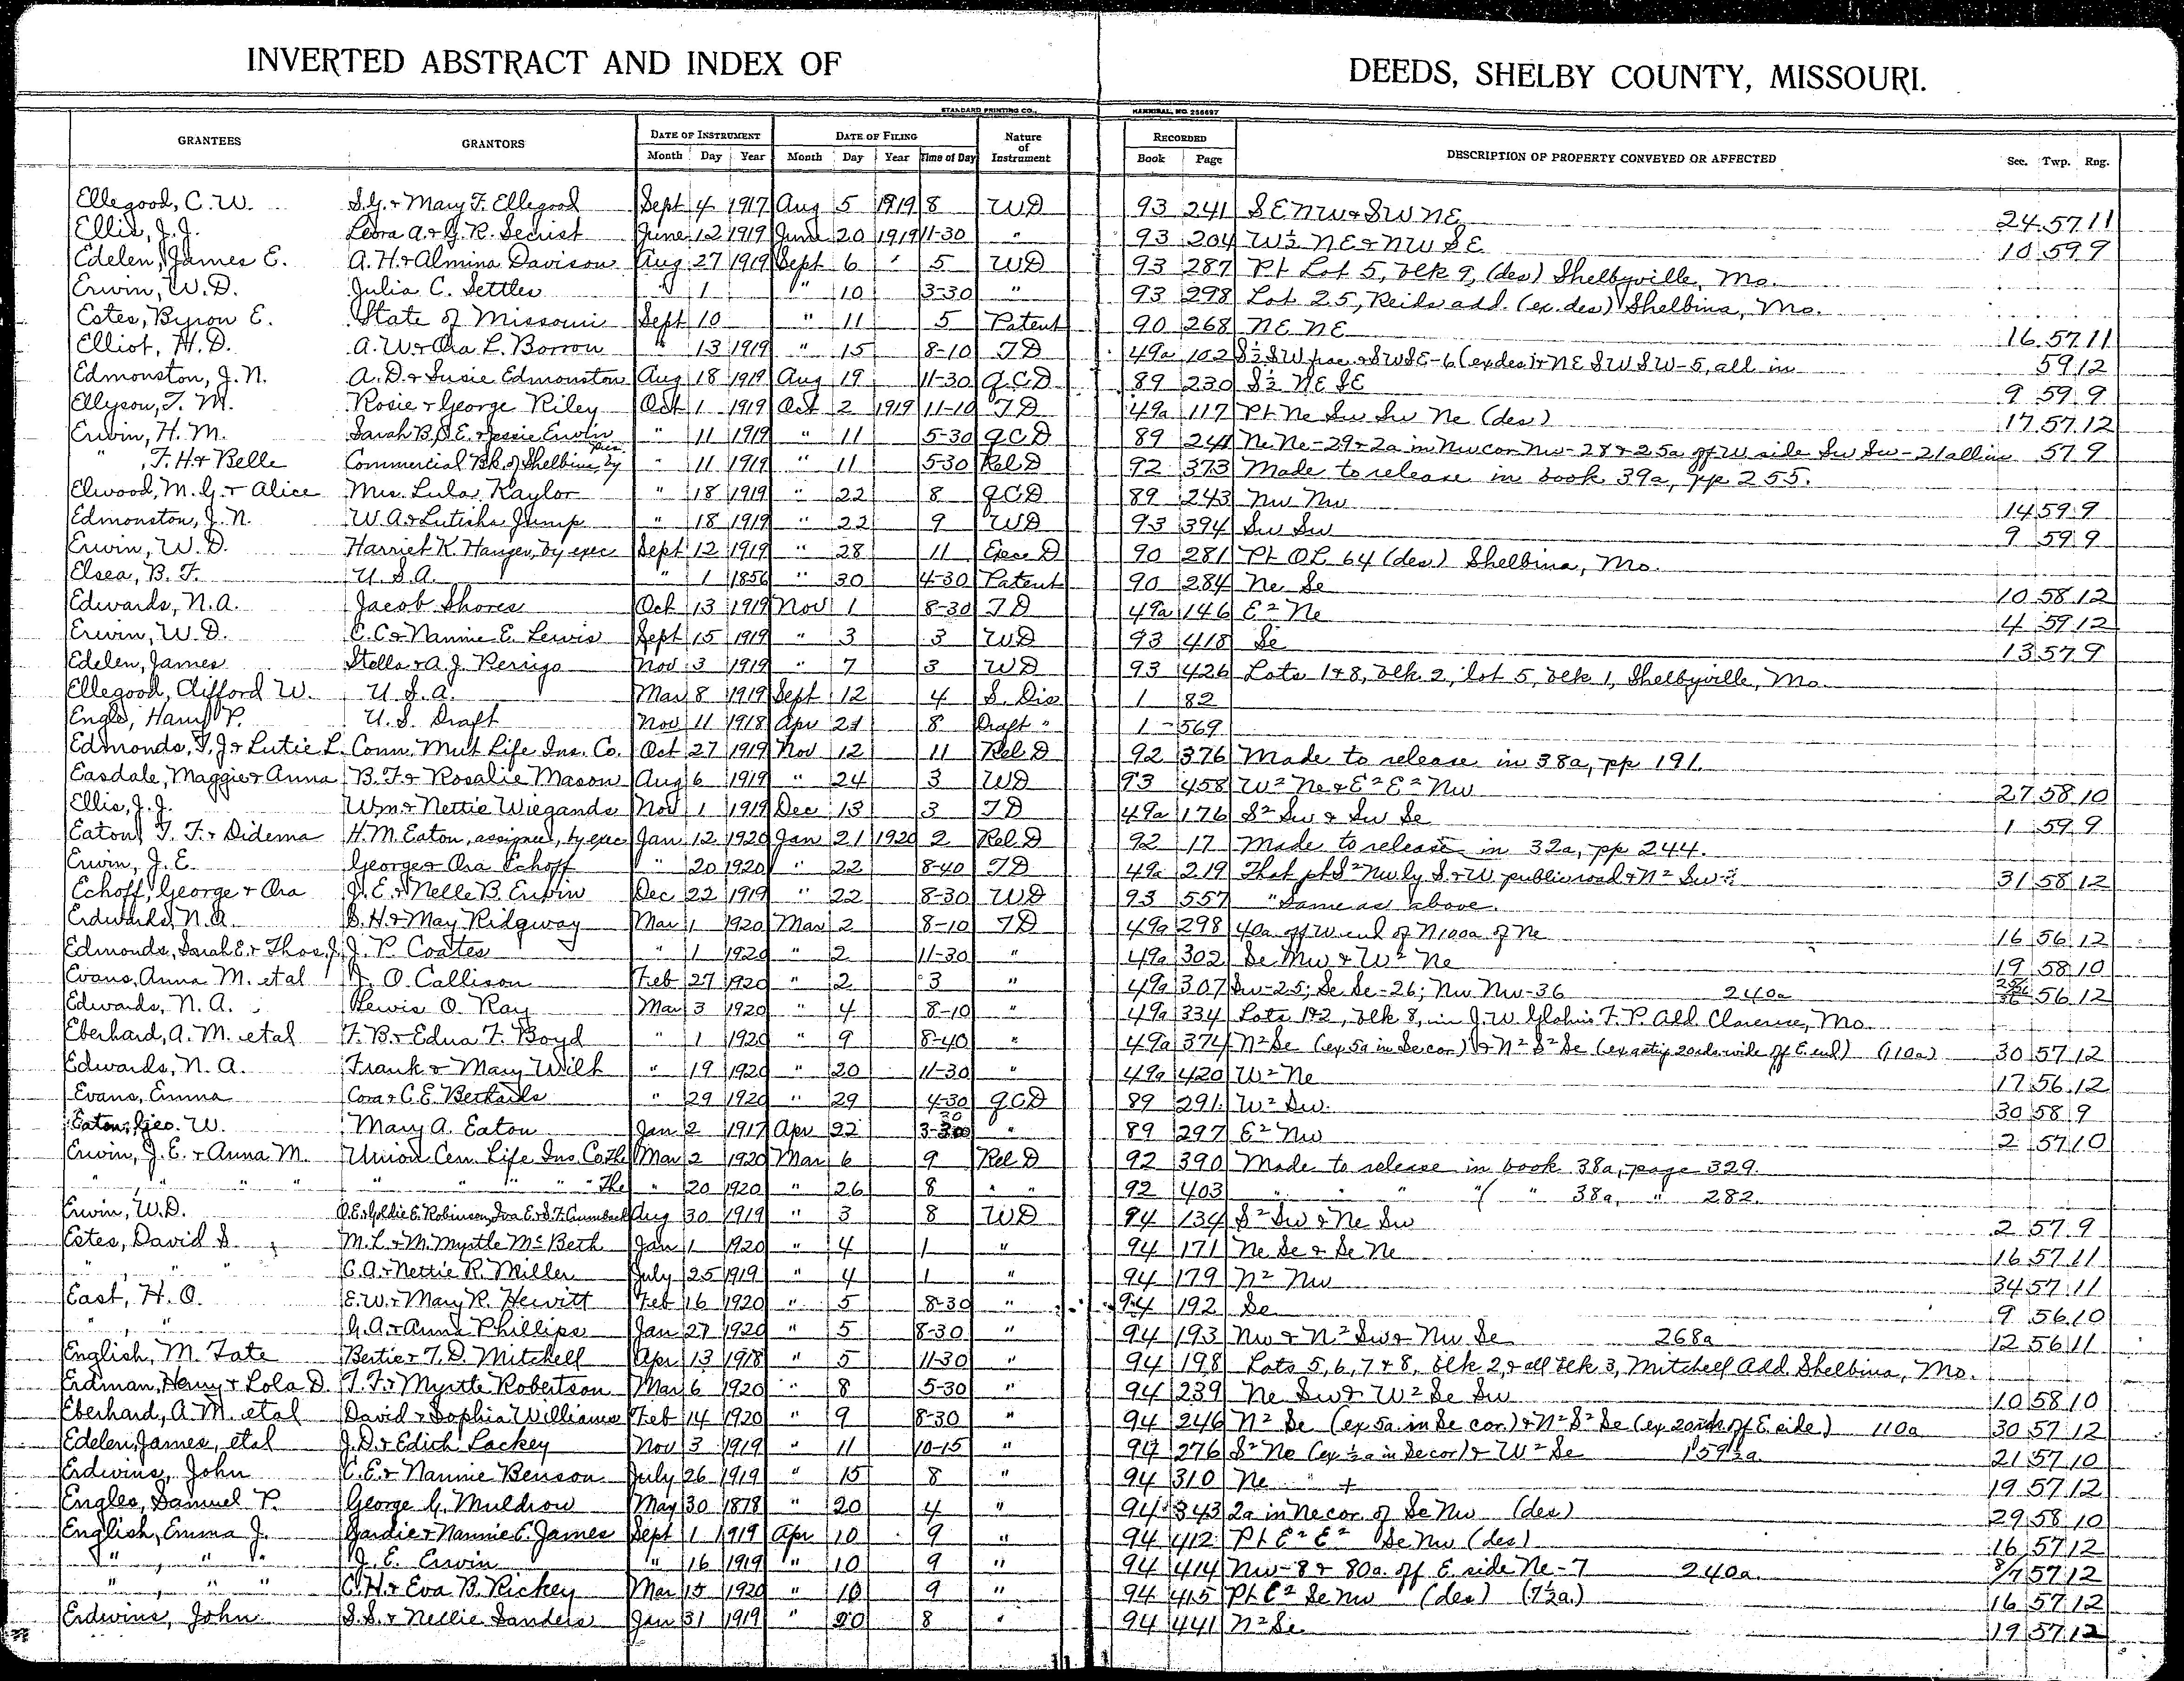 INVERTED ABSTRACT AND INDEX OF DEEDS, SHELBY COUNTY, MISSOURI.
STANDARD PRINTING CO., HANNIBAL, NO. 256697
GRANTEES GRANTORS DATE OF INSTRUMENT DATE OF FILING Nature of Instrument RECORDED DESCRIPTION OF PROPERTY CONVEYED OR AFFECTED Sec. Twp. Rng.
Month Day Year Month Day Year Time of Day Book Page
Ellegood, C. W. S. G. & Mary F. Ellegood Sept 4 1917 Aug 5 1919 8 WD 93 241 SENW & SWNE 24 57 11
Ellis, J. J. Leora A & G. R. Secrist June 12 1919 June 20 1919 11-30 " 93 204 W½ NE & NW SE 10 59 9
Edelen, James E. A. H. & Almina Davison Aug 27 1919 Sept 6 ' 5 WD 93 287 Pt Lot 5, Blk 9, (des) Shelbyville, Mo.
Erwin, W. D. Julia C. Settles " 1 " 10 3-30 " 93 298 Lot 25, Reids add. (ex. des) Shelbina, Mo.
Estes, Byron E. State of Missouri Sept 10 " 11 5 Patent 90 268 NE NE 16 57 11
Elliot, H. D. A. W. & Ora L. Borron " 13 1919 " 15 8-10 TD 49a 102 S½ SW frac & SWSE-6 (ex des) & NE SW SW-5, all in 59 12
Edmonston, J. N. A. D. & Susie Edmonston Aug 18 1919 Aug 19 11-30 QCD 89 230 S½ NE SE 9 59 9
Ellyson, T. M. Rosie & George Riley Oct 1 1919 Oct 2 1919 11-10 TD 49a 117 Pt Ne Sw Sw Ne (des) 17 57 12
Erwin, H. M. Sarah B, O. E. & Jessie Erwin " 11 1919 " 11 5-30 QCD 89 241 Ne Ne-29 & 2a in Nw cor Nw-28 & 25a off W side Sw Sw-21 all in 57 9
" , T. H. & Belle Commercial Bk of Shelbina, by Pres. " 11 1919 " 11 5-30 Rel D 92 373 Made to release in book 39a, pp 255.
Elwood, M. G. & Alice Mrs. Lula Kaylor " 18 1919 " 22 8 QCD 89 243 Nw Nw 14 59 9
Edmonston, J. N. W. A. & Lutisha Jump " 18 1919 " 22 9 WD 93 394 Sw Sw 9 59 9
Erwin, W. D. Harriet K. Hanger, by exec Sept 12 1919 " 28 11 Exec D 90 281 Pt OL 64 (des) Shelbina, Mo.
Elsea, B. F. U. S. A. " 1 1856 " 30 4-30 Patent 90 284 Ne Se 10 58 12
Edwards, N. A. Jacob Shores Oct 13 1919 Nov 1 8-30 TD 49a 146 E² Ne 4 59 12
Erwin, W. D. C. C. & Nannie E. Lewis Sept 15 1919 " 3 3 WD 93 418 Se 13 57 9
Edelen, James Stella & A. J. Perrigo Nov 3 1919 " 7 3 WD 93 426 Lots 1 & 8, Blk 2, lot 5, Blk 1, Shelbyville, Mo.
Ellegood, Clifford W. U. S. A. Mar 8 1919 Sept 12 4 S. Dis 1 82
Engle, Harry P. U. S. Draft Nov 11 1918 Apr 21 8 Draft " 1 - 569
Edmonds, T. J & Lutie L. Conn. Mut Life Ins. Co. Oct 27 1919 Nov 12 11 Rel D 92 376 Made to release in 38a, pp 191.
Easdale, Maggie & Anna B. F. & Rosalie Mason Aug 6 1919 " 24 3 WD 93 458 W² Ne & E² E² Nw 27 58 10
Ellis, J. J. Wm & Nettie Wiegands Nov 1 1919 Dec 13 3 TD 49a 176 S² Sw & Sw Se 1 59 9
Eaton, T. F. & Didema H. M. Eaton, assignee, by exec Jan 12 1920 Jan 21 1920 2 Rel D 92 17 Made to release in 32a, pp 244.
Erwin, J. E. George & Ora Echoff " 20 1920 " 22 8-40 TD 49a 219 That pt S² Nw ly S & W public road & N² Sw 31 58 12
Echoff, George & Ora J. E. & Nelle B. Erwin Dec 22 1919 " 22 8-30 WD 93 557 "Same as above.
Edwards, N. A. S. H. & May Ridgway Mar 1 1920 Mar 2 8-10 TD 49a 298 40a off W end of N 100a of Ne 16 56 12
Edmonds, Sarah E. & Thos. J. J. P. Coates " 1 1920 " 2 11-30 " 49a 302 Se Nw & W² Ne 19 58 10
Evans, Anna M. etal J. O. Callison Feb 27 1920 " 2 3 " 49a 307 Sw-25; Se Se-26; Nw Nw-36 240a 56 12
Edwards, N. A. Lewis O. Ray Mar 3 1920 " 4 8-10 " 49a 334 Lots 1 & 2, Blk 8, in J. W. F. P. Add. Clarence, Mo.
Eberhard, A. M. etal F. B. & Edna F. Boyd " 1 1920 " 9 8-40 " 49a 374 N² Se (ex 5a in Se cor) & N² S² Se (ex a strip 20rds wide off E. end) (110a) 30 57 12
Edwards, N. A. Frank & Mary Wilt " 19 1920 " 20 11-30 " 49a 420 W² Ne 17 56 12
Evans, Emma Cora & C. E. " 29 1920 " 29 4-30 QCD 89 291 W² Sw 30 58 9
Eaton, Geo. W. Mary A. Eaton Jan 2 1917 Apr 22 3-30 " 89 297 E² Nw 2 57 10
Erwin, J. E. & Anna M. Union Cen. Life Ins. Co. The Mar 2 1920 Mar 6 9 Rel D 92 390 Made to release in book 38a, page 329.
" " " " " " " " " The " 20 1920 " 26 8 " " 92 403 " " " " " 38a, " 282.
Erwin, W. D. O. E. & Goldie E. Robinson, Iva E. & S. F. Crumback Aug 30 1919 " 3 8 WD 94 134 S² Sw & Ne Sw 2 57 9
Estes, David S. M. L. & M. Myrtle McBeth Jan 1 1920 " 4 1 " 94 171 Ne Se & Se Ne 16 57 11
" " " C. A. & Nettie R. Miller July 25 1919 " 4 1 " 94 179 N² Nw 34 57 11
East, H. O. E. W. & Mary R. Hewitt Feb 16 1920 " 5 8-30 " 94 192 Se 9 56 10
" , " G. A. & Anna Phillips Jan 27 1920 " 5 8-30 " 94 193 Nw & N² Sw & Nw Se 268a 12 56 11
English, M. Tate Bertie & T. D. Mitchell Apr 13 1918 " 5 11-30 " 94 198 Lots 5, 6, 7 & 8, Blk 2, & all Blk 3, Mitchell Add. Shelbina, Mo.
Erdman, Henry & Lola D. T. F. & Myrtle Robertson Mar 6 1920 " 8 5-30 " 94 239 Ne Sw & W² Se Sw 10 58 10
Eberhard, A. M. etal David & Sophia Williams Feb 14 1920 " 9 8-30 " 94 246 N² Se (ex 5a in Se cor.) & N² S² Se (ex 20rds off E. side) 110a 30 57 12
Edelen, James, etal J. D. & Edich Lackey Nov 3 1919 " 11 10-15 " 94 276 S² Ne (ex ½a in Se cor) & W² Se 159½a 21 57 10
Erdwins, John C. E. & Nannie Benson July 26 1919 " 15 8 " 94 310 Ne 19 57 12
Engles, Samuel P. George G. Muldrow May 30 1878 " 20 4 " 94 343 2a in Ne cor. of Se Nw (des) 29 58 10
English, Emma J. Gardie & Nannie E. James Sept 1 1919 Apr 10 9 " 94 412 Pt E² E² Se Nw (des) 16 57 12
" , " " J. E. Erwin " 16 1919 " 10 9 " 94 414 Nw-8 & 80a. off E. side Ne-7 240a. 8/7 57 12
" , " " C. H. & Eva B. Rickey Mar 15 1920 " 10 9 " 94 415 Pt E² Se Nw (des) (7½a.) 16 57 12
Erdwins, John S. S. & Nellie Sanders Jan 31 1919 " 20 8 " 94 441 N² Se 19 57 12